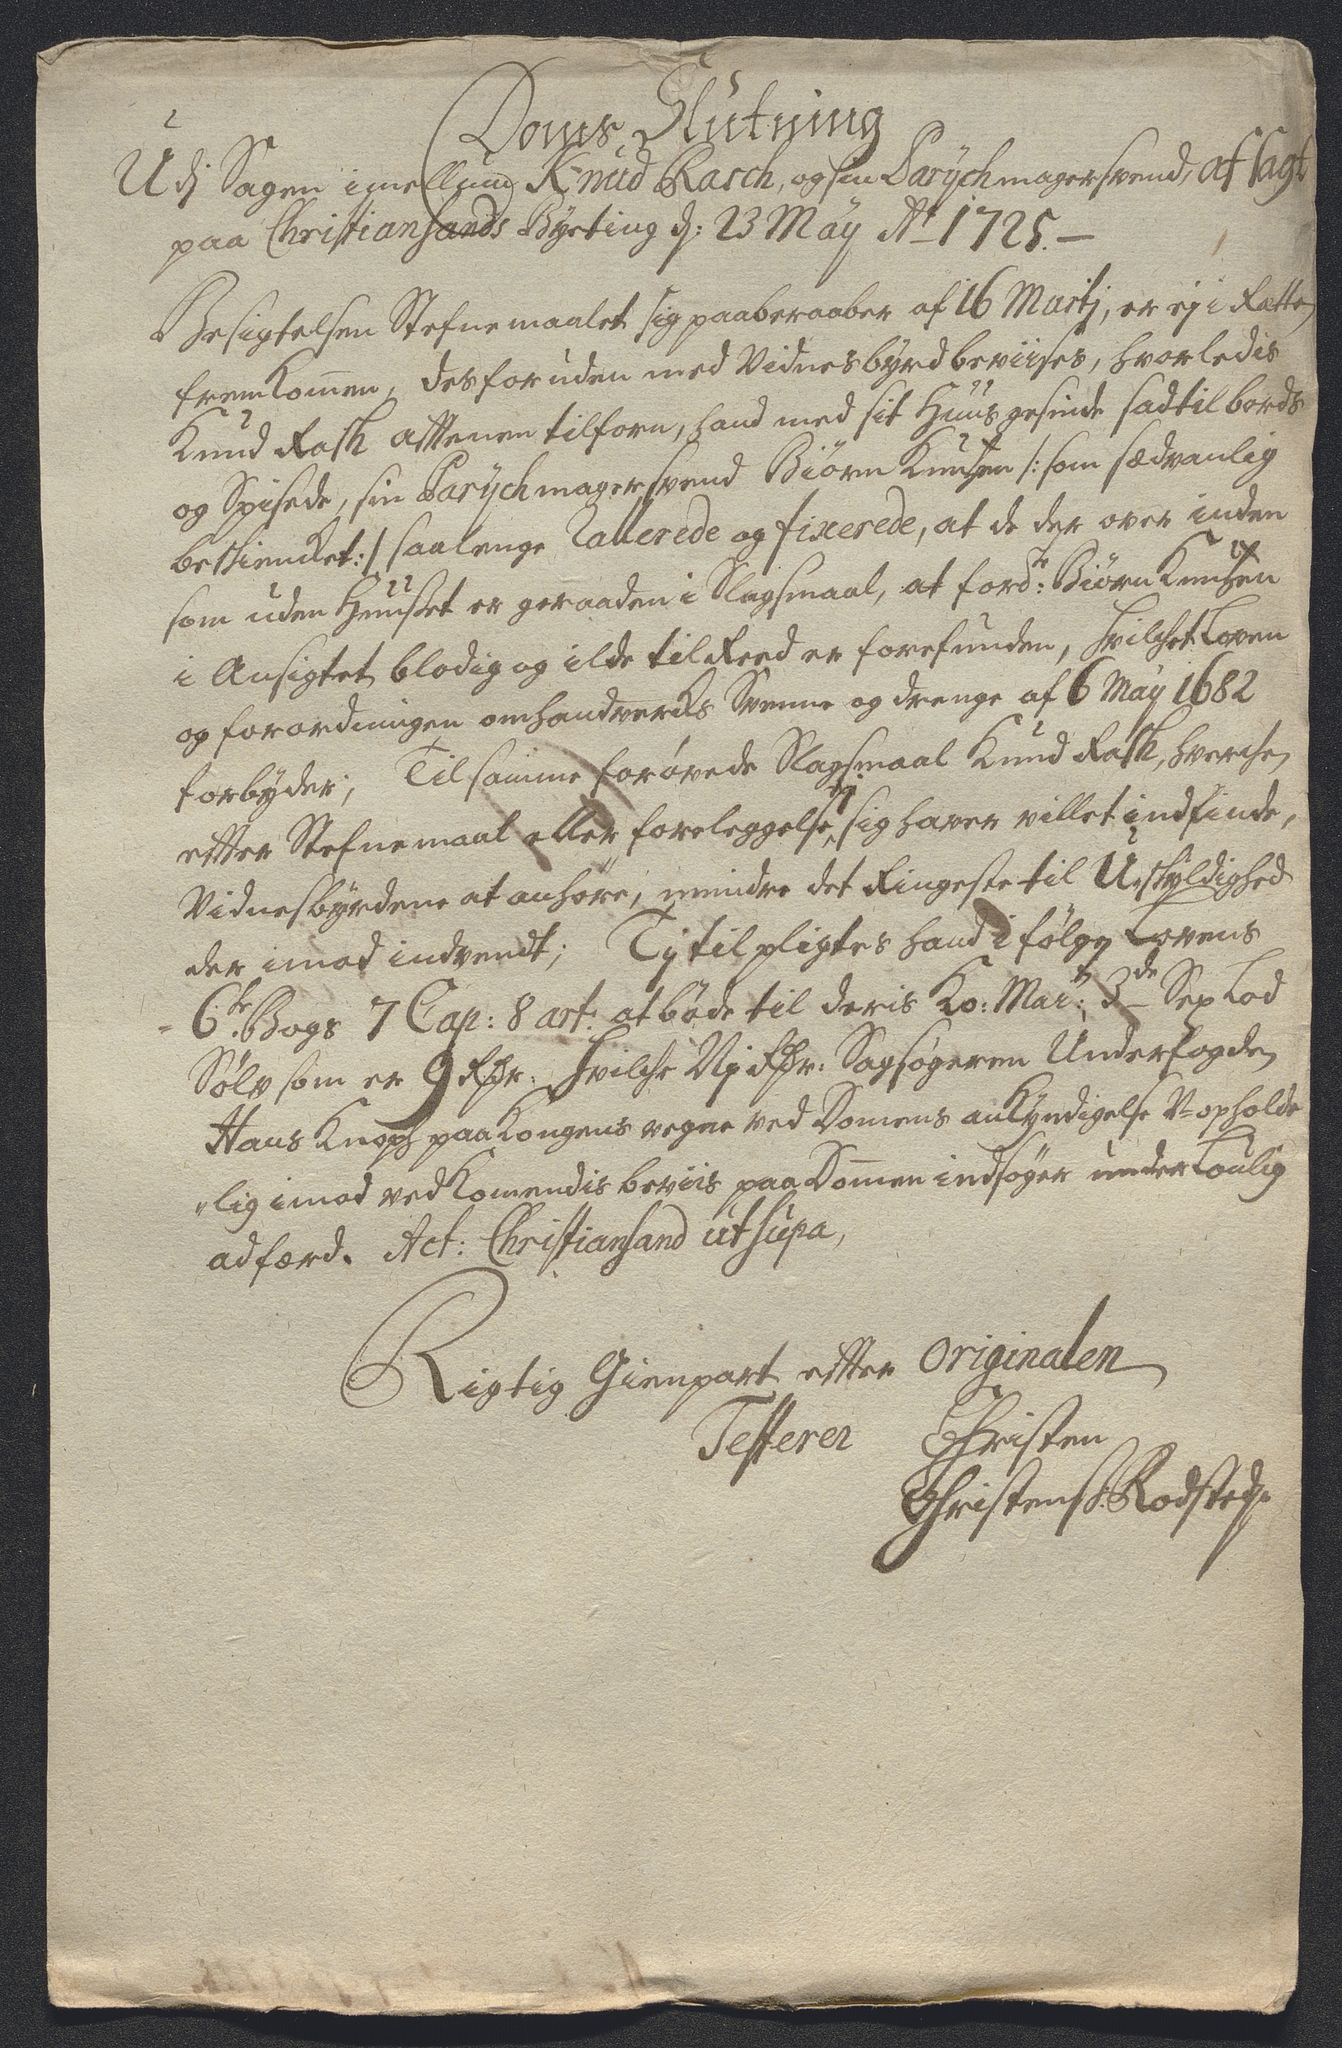 Doms Slutning
Udj Sagen imellum Knud Rasch, og sin Parÿchmagersvend, afsagt
paa Christiansands Bÿeting d: 23 Maÿ Aᵒ 1725.
Besigtelsen Stefnemaalet sig paaberaaber af 16 Martj, er ej i Rætte
fremkommen, desforuden med Vidnesbÿrd beviises, hvorledis
Knud Rash afftenen tilforn, hand med sit Huus gesinde sad til bords
og Spisede, sin Parÿchmagersvend Biørn Knutzen /: som sædvanlig
beskiencket :/ saalenge Rallerede og fixerede, at de der over inden
som uden Huuset er geraaden i Slagsmaal, at fordᵉ: Biørn Knutzen
i Ansigtet blodig og ilde tilReed er forefunden, hvilchet Loven
og forordningen om handvercks Svenne og drenge af 6 Maÿ 1682
forbÿder; Til samme forøvede Slagsmaal Knud Rash, hverchen
efter Stefnemaal eller foreleggelse ej sig haver villet indfinde,
Vidnesbÿrdene at anhøre, mindre det Ringeste til Uskÿldighed
der imod indvendt; Tj tilpligtes hand i følge Lovens
6ᵗᵉ Bogs 7 Cap: 8 art: at bøde til deris Ko: Maÿᵗ: 3ᵈᵉ Sex Lod
Sølv som er 9 Rdr. Hvilche Nj Rdr: Sagsøgeren Underfogden
Hans Knoph paa Kongens vegne ved Domens ankÿndigelse U-opholde
"lig imod vedkomendis beviis paa Dommen indsøger under Loulig
adfærd. Act: Christiansand ut supra,
Rigtig Gienpart efter Originalen
Testerer Christen
Christens: Rodsted